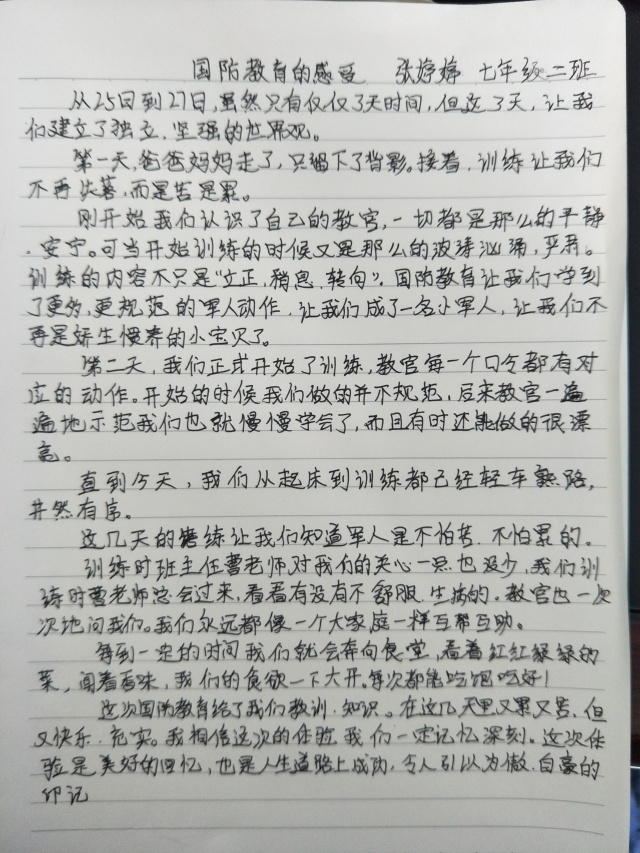 国防教育的感受 张婷婷 七年级二班
从25日到27日,虽然只有仅仅了天时间,但这了天,让我
们建立了独立、坚强的世界观。
第一天,爸爸妈妈走了,只留下了背影。接着,训练让我们
不再失落,而是苦是累。
刚开始我们认识了自己的教官,一切都是那么的平静
、安宁。可当开始训练的时候又是那么的波涛汹涌,严肃。
训练的内容不只是“立正,稍息,转向”。国防教育让我们学到
了更多,更规范的军人动作,让我们成了一名小军人,让我们不
再是娇生惯养的小宝贝了。
第二天,我们正式开始了训练,教官每一个口令都有对
应的动作。开始的时候我们做的并不规范,后来教官一遍
遍地示范我们也就慢慢学会了,而且有时还能做的很漂
亮。
直到今天,我们从起床到训练都已经轻车熟路,
井然有序。
这几天的练让我们知道军人是不怕苦、不怕累的。
训练时班主任曹老师对我们的关心一点也没少,我们训
练时曹老师总会过来,看看有没有不舒服、生病的。教官也一次
次地问我们。我们永远都像一个大家庭一样互帮互助。
等到一定的时间我们就会奔向食堂,看着红红绿绿的
菜,闻着香味,我们的食欲一下大开。每次都能吃饱吃好!
这次国防教育给了我们教训、知识。在这几天里又累又苦,但
又快乐、充实。我相信这次的体验我们一定记忆深刻。这次体
验是美好的回忆,也是人生道路上成功,令人引以为傲、自豪的
印记